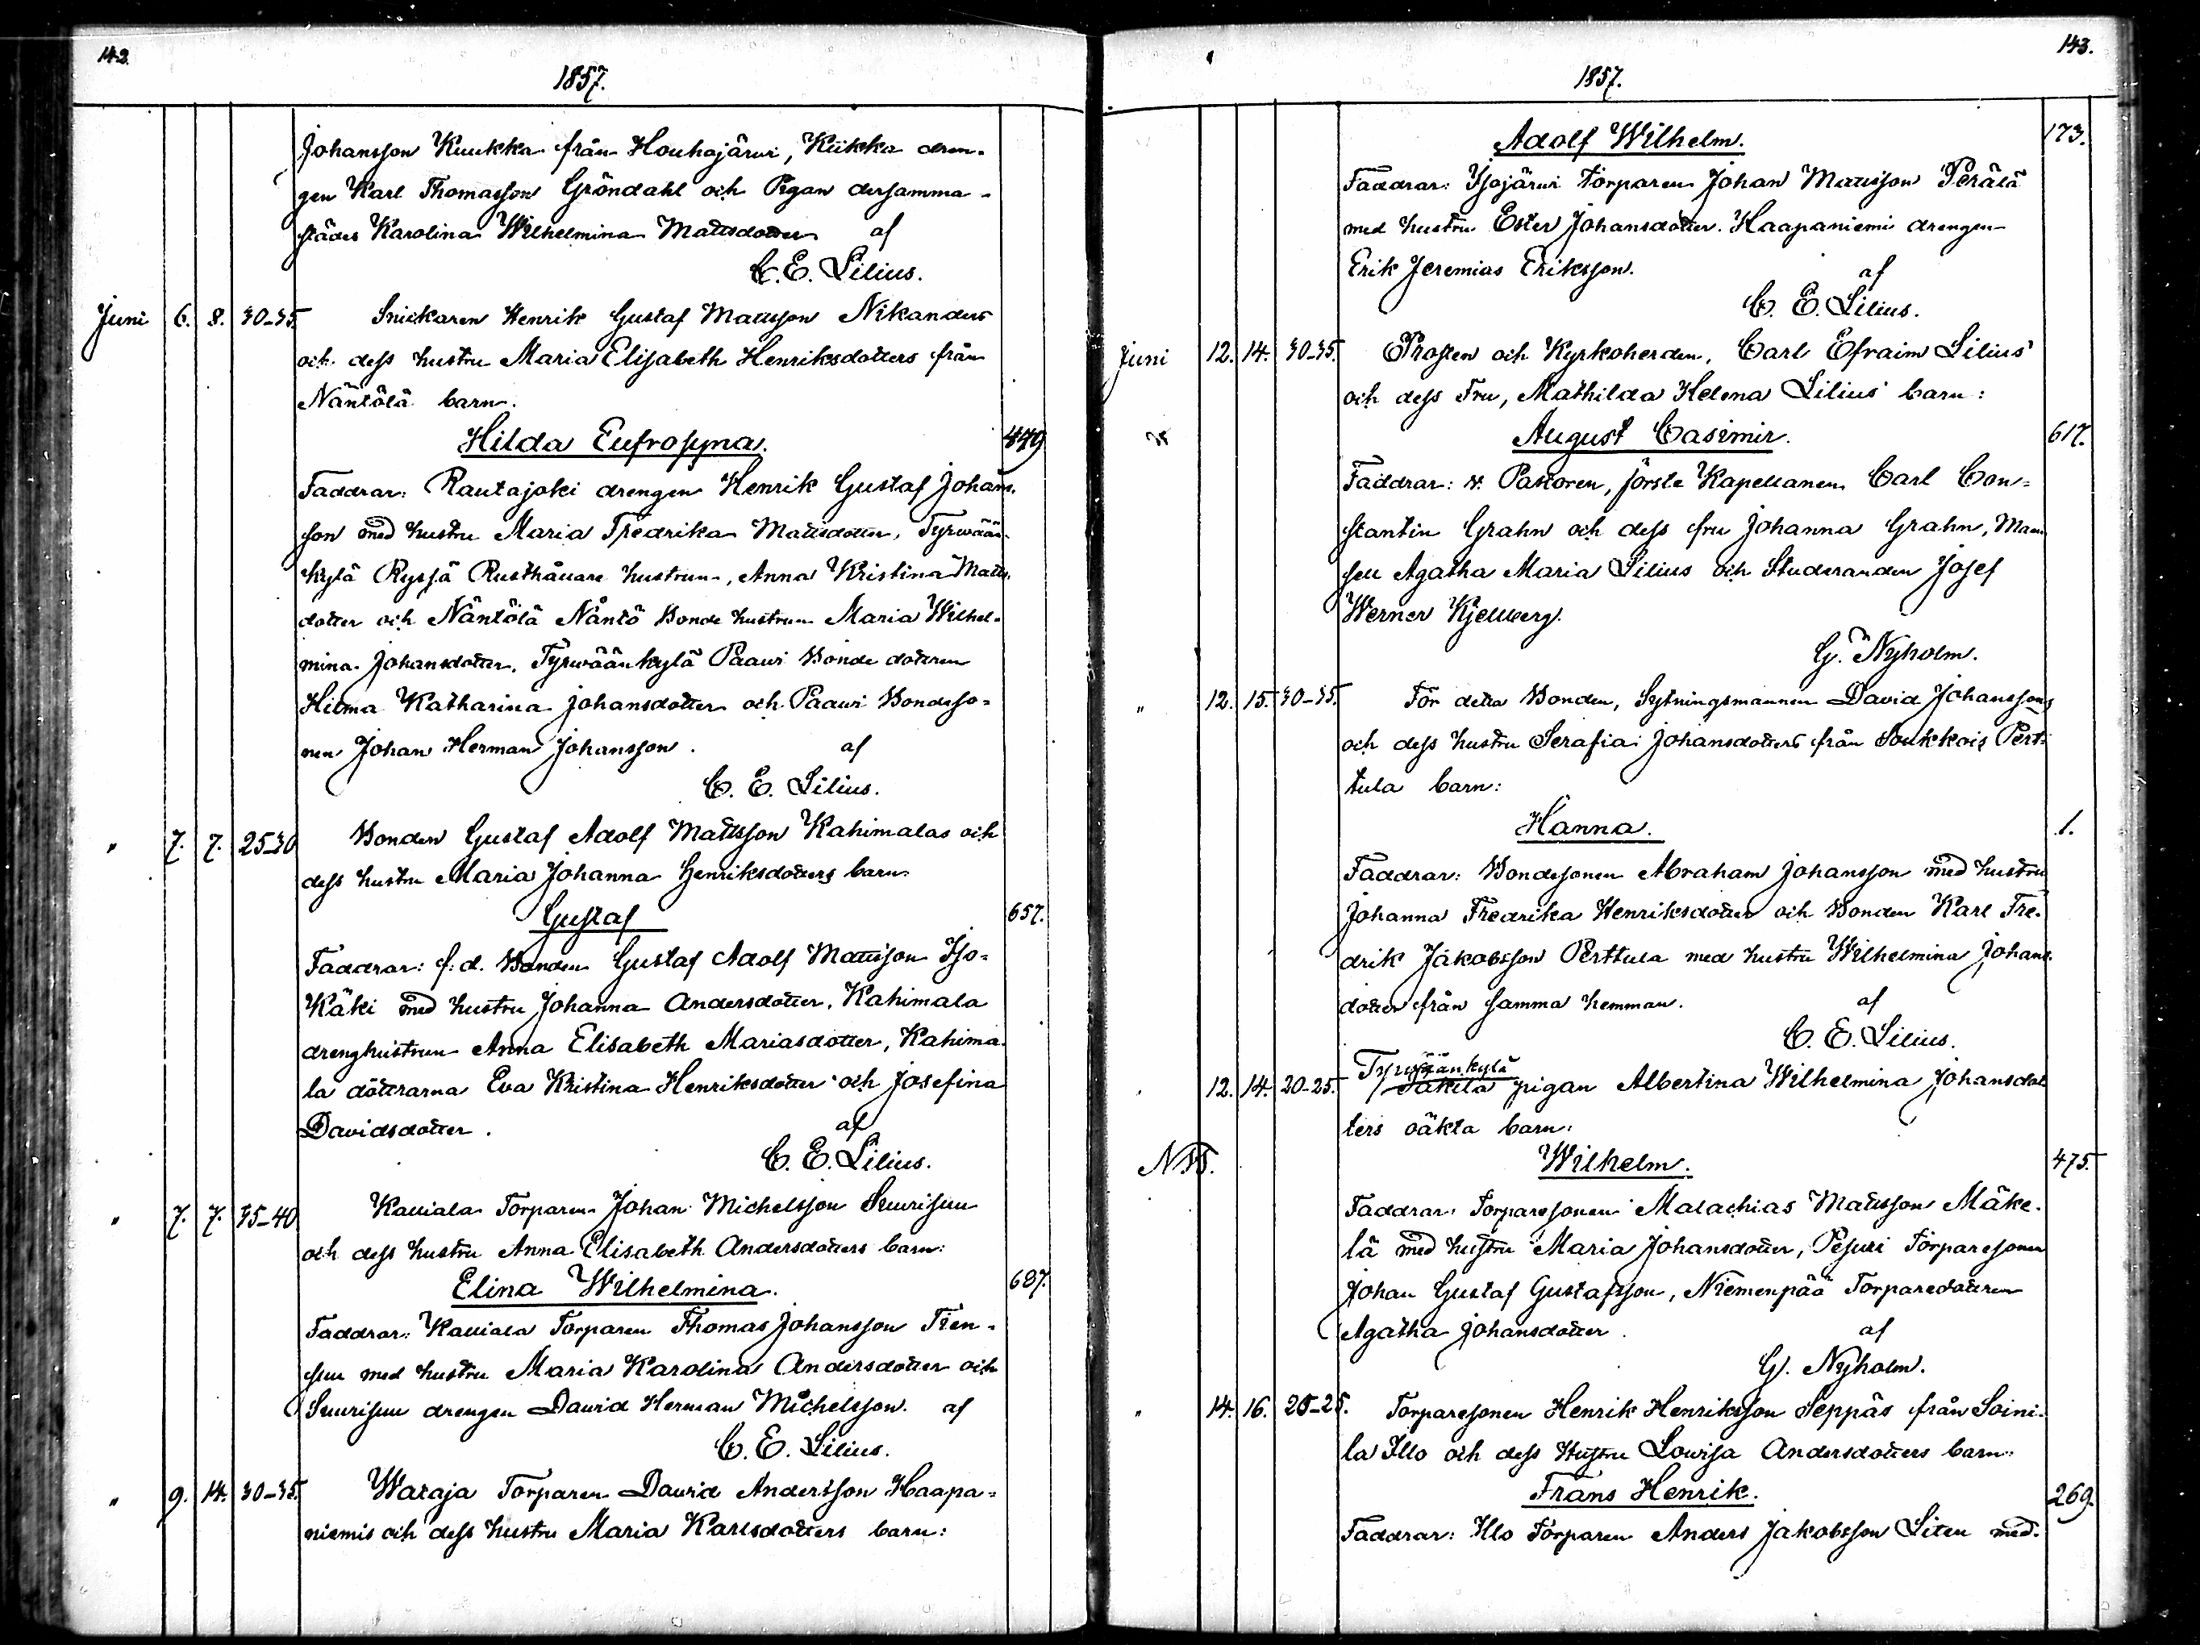 142.
1857.
Johansson Kuukka från Houhajärwi, Kiikka dren-
gen Karl Thomasson Gröndahl och Pigan dersamma-
städes Karolina Wilhelmina Mattsdotter af
C. E. Lilius.
Juni 6. 8. 30-35. Snickaren Henrik Gustaf Mattsson Nikanders
och dess hustru Maria Elisabeth Henriksdotters från
Näntölä barn.
Hilda Eufrosyna. 449
Faddrar: Rautajoki drengen Henrik Gustaf Johans-
son med hustru Maria Fredrika Mattsdotter, Tyrwään-
kylä Ryssä Rusthållare hustrun, Anna Kristina Matts-
dotter och Näntölä Näntö Bonde hustrun Maria Wilhel-
mina Johansdotter, Tyrwäänkylä Paawi Bonde dottren
Hilma Katharina Johansdotter och Paawi Bondeso-
nen Johan Herman Johansson. af
C. E. Lilius.
" 7. 7. 25-30 Bonden Gustaf Adolf Mattsson Kahimalas och
dess hustru Maria Johanna Henriksdotters barn
Gustaf 657.
Faddrar: f. d. Bonden Gustaf Adolf Mattsson Iso-
Käki med hustru Johanna Andersdotter, Kahimala
drenghustrun Anna Elisabeth Mariasdotter, Kahima-
la döttrarna Eva Kristina Henriksdotter och Josefina
Davidsdotter. af
C. E. Lilius.
" 7. 7. 35-40 Kalliala Torparen Johan Michelsson Suurisuu
och dess hustru Anna Elisabeth Andersdotters barn:
Elina Wilhelmina. 687.
Faddrar: Kalliala Torparen Thomas Johansson Tien-
suu med hustru Maria Karolina Andersdotter och
Suurisuu drengen David Herman Michelsson. af
C. E. Lilius.
" 9. 14. 30-35. Wataja Torparen David Andersson Haapa-
niemis och dess hustru Maria Karlsdotters barn:
143.
1857.
Adolf Wilhelm. 173.
Faddrar: Isojärwi torparen Johan Mattsson Perälä
med hustru Ester Johansdotter. Haapaniemi drengen
Erik Jeremias Eriksson. af
C. E. Lilius.
Juni 12. 14. 30-35. Prosten och Kyrkoherden, Carl Efraim Lilius'
och dess Fru, Mathilda Helena Lilius' barn:
August Casimir. 617.
Faddrar: v. Pastoren, förste Kapellanen Carl Con-
stantin Grahn och dess fru Johanna Grahn, Mam-
sell Agatha Maria Lilius och Studeranden Josef
Werner Kjellberg.
G. Nyholm.
" 12. 15. 30-35. För detta Bonden, Sytningsmannen David Johanssons
och dess hustru Serafia Johansdotters från Soukkois Pert-
tula barn:
Hanna. 1.
Faddrar: Bondesonen Abraham Johansson med hustru
Johanna Fredrika Henriksdotter och Bonden Karl Fre-
drik Jakobsson Perttula med hustru Wilhelmina Johans-
dotter från samma hemman. af
C. E. Lilius.
Tyrwäänkylä
12. 14. 20-25. pigan Albertina Wilhelmina Johansdot-
ters oäkta barn:
Wilhelm. 475.
Faddrar: Torparesonen Malachias Mattsson Mäke-
lä med hustru Maria Johansdotter, Pesuri Torparesonen
Johan Gustaf Gustafsson, Niemenpää Torparedottren
Agatha Johansdotter. af
G. Nyholm.
" 14. 16. 20-25. Torparesonen Henrik Henriksson Seppäs från Soini-
la Illo och dess Hustru Lowisa Andersdotters barn:
Frans Henrik. 269.
Faddrar: Illo Torparen Anders Jakobsson Liten med